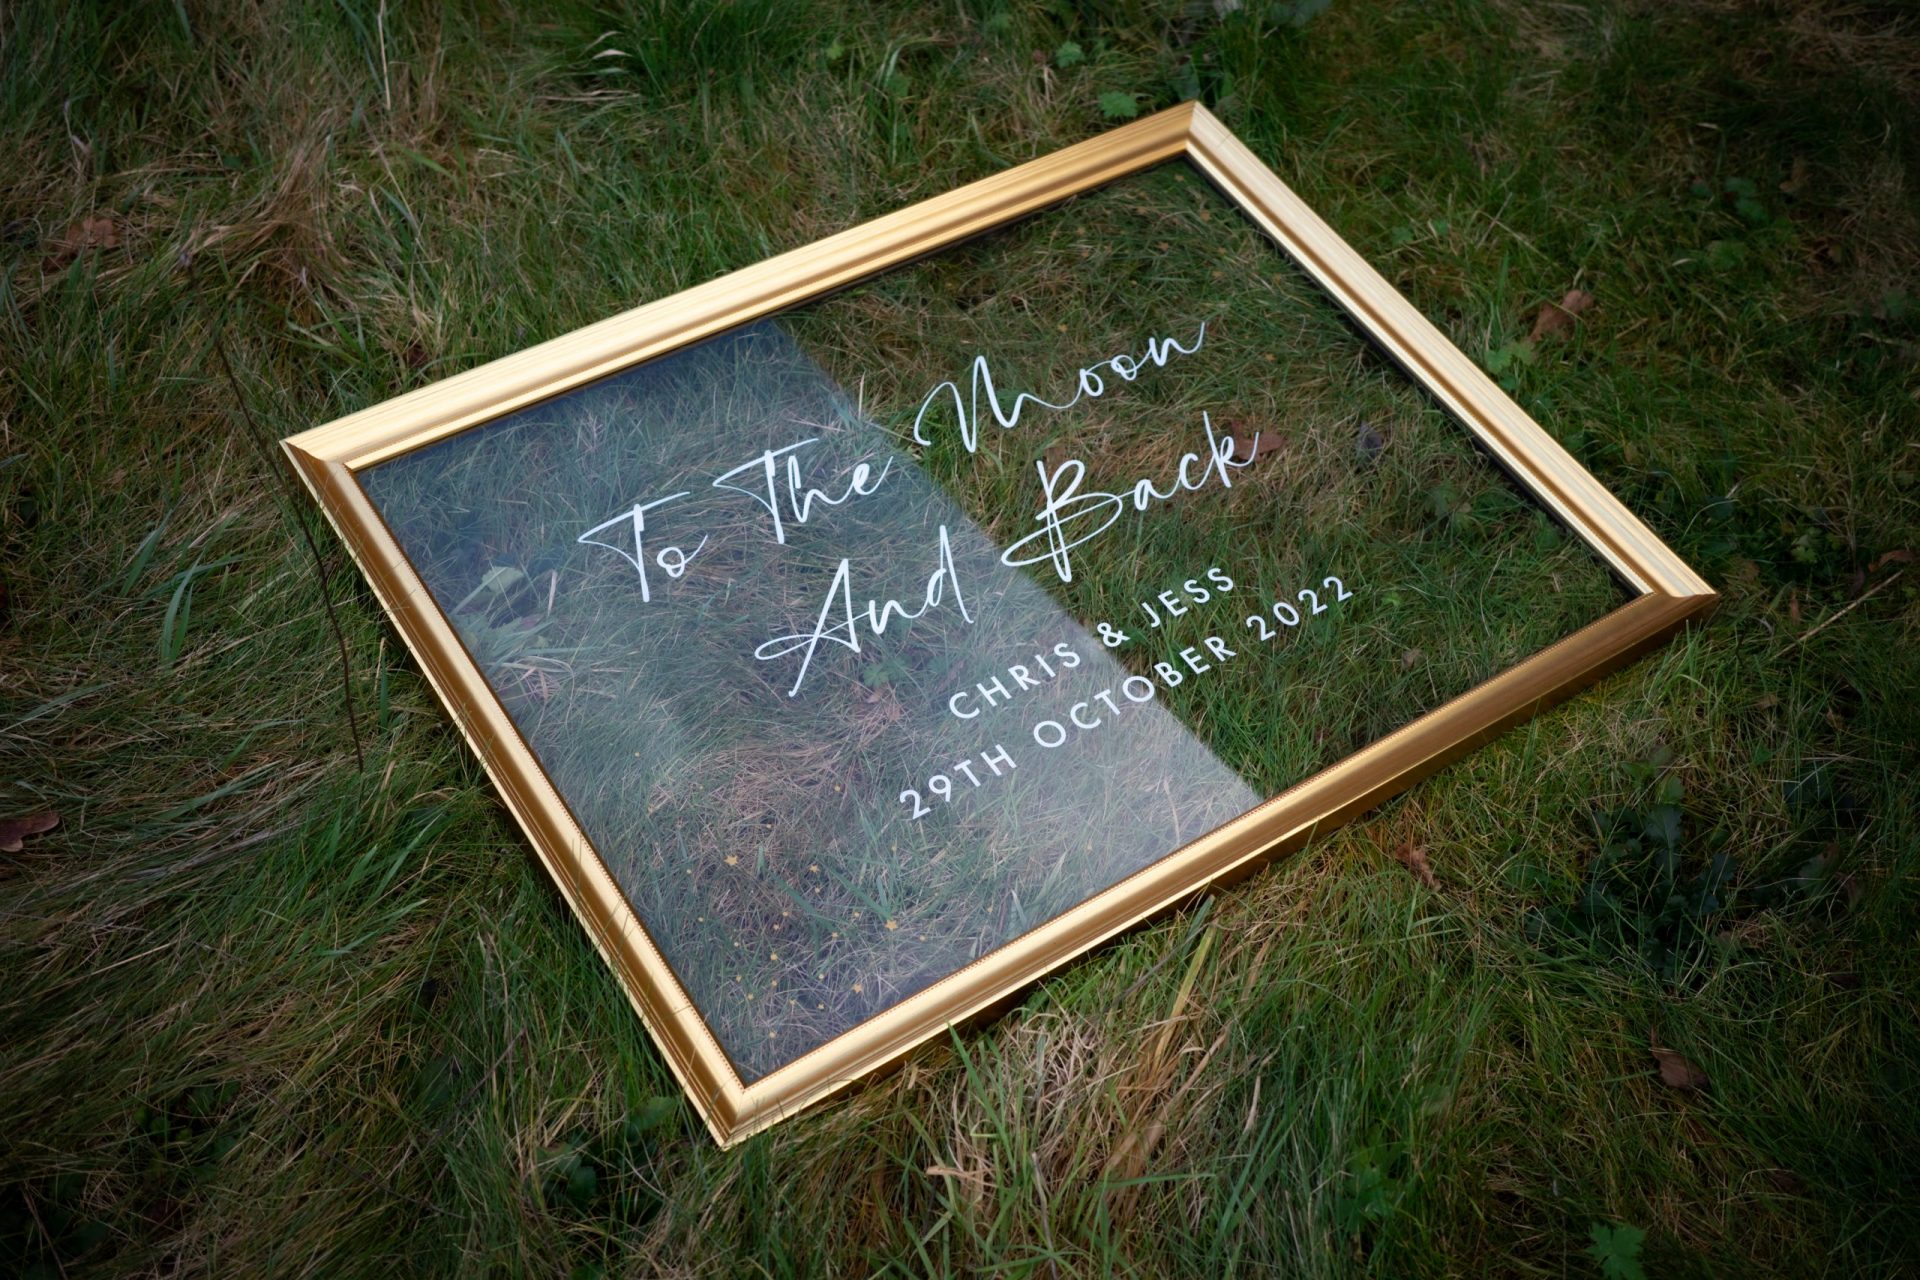 To The Moon
And Back
CHRIS & JESS
29TH OCTOBER 2022